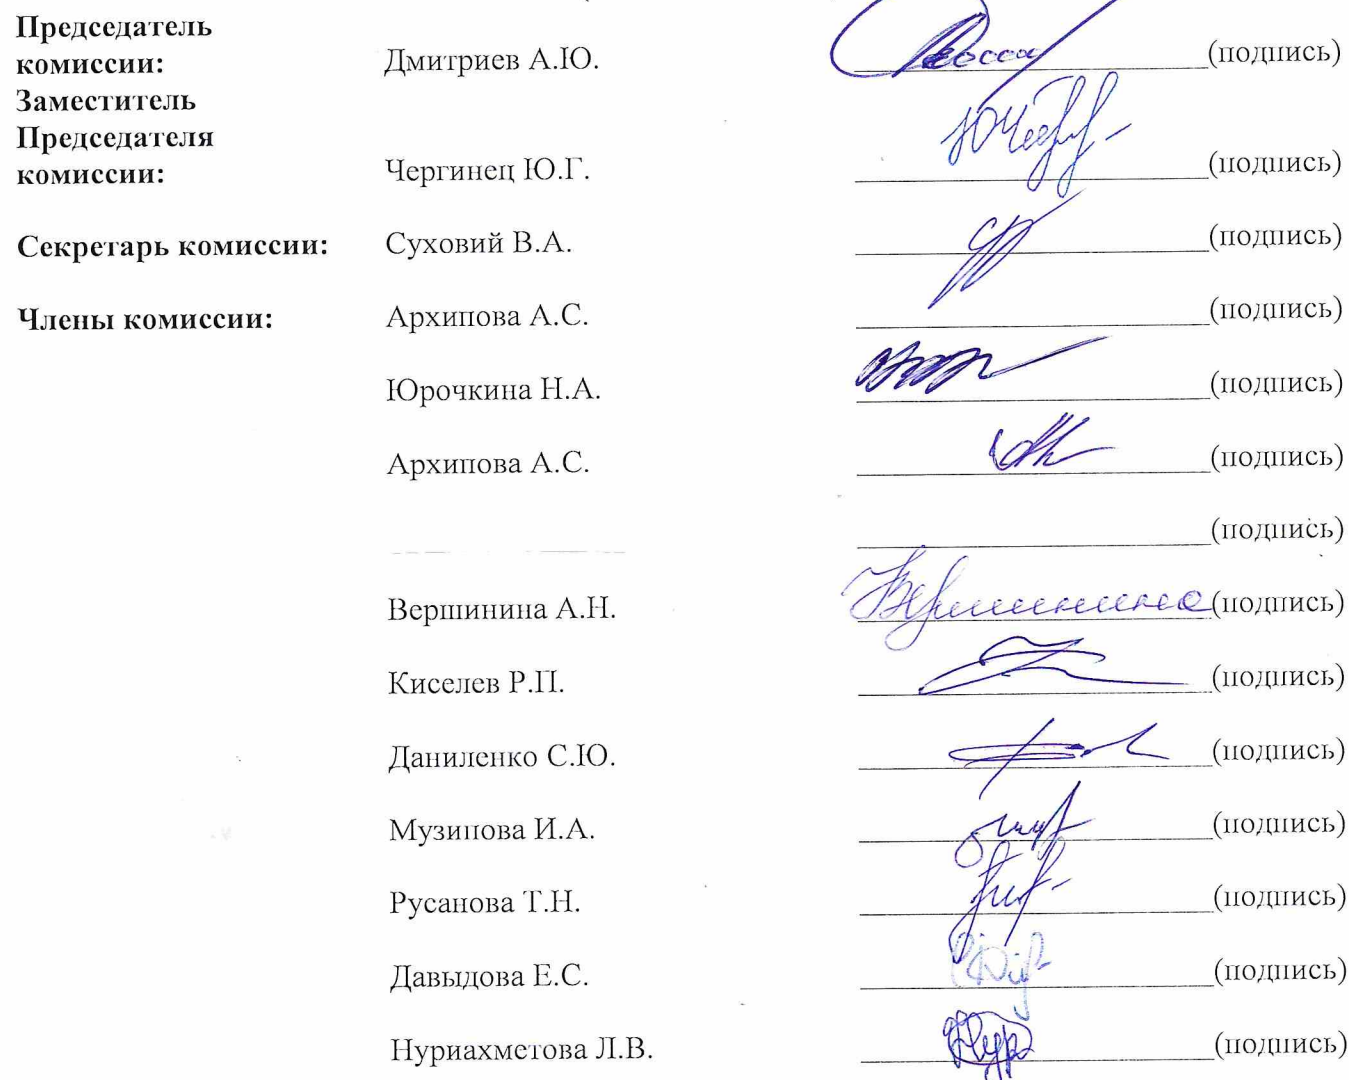 Председатель
комиссии: Дмитриев А.Ю. (подпись)
Заместитель
Председателя
комиссии: Чергинец Ю.Г. (подпись)
Секретарь комиссии: Суховий В.А. (подпись)
Члены комиссии: Архипова А.С. (подпись)
Юрочкина Н.А. (подпись)
Архипова А.С. (подпись)
(подпись)
Вершинина А.Н. Вершинина (подпись)
Киселев Р.П. (подпись)
Даниленко С.Ю. (подпись)
Музипова И.А. (подпись)
Русанова Т.Н. (подпись)
Давыдова Е.С. (подпись)
Нуриахметова Л.В. (подпись)